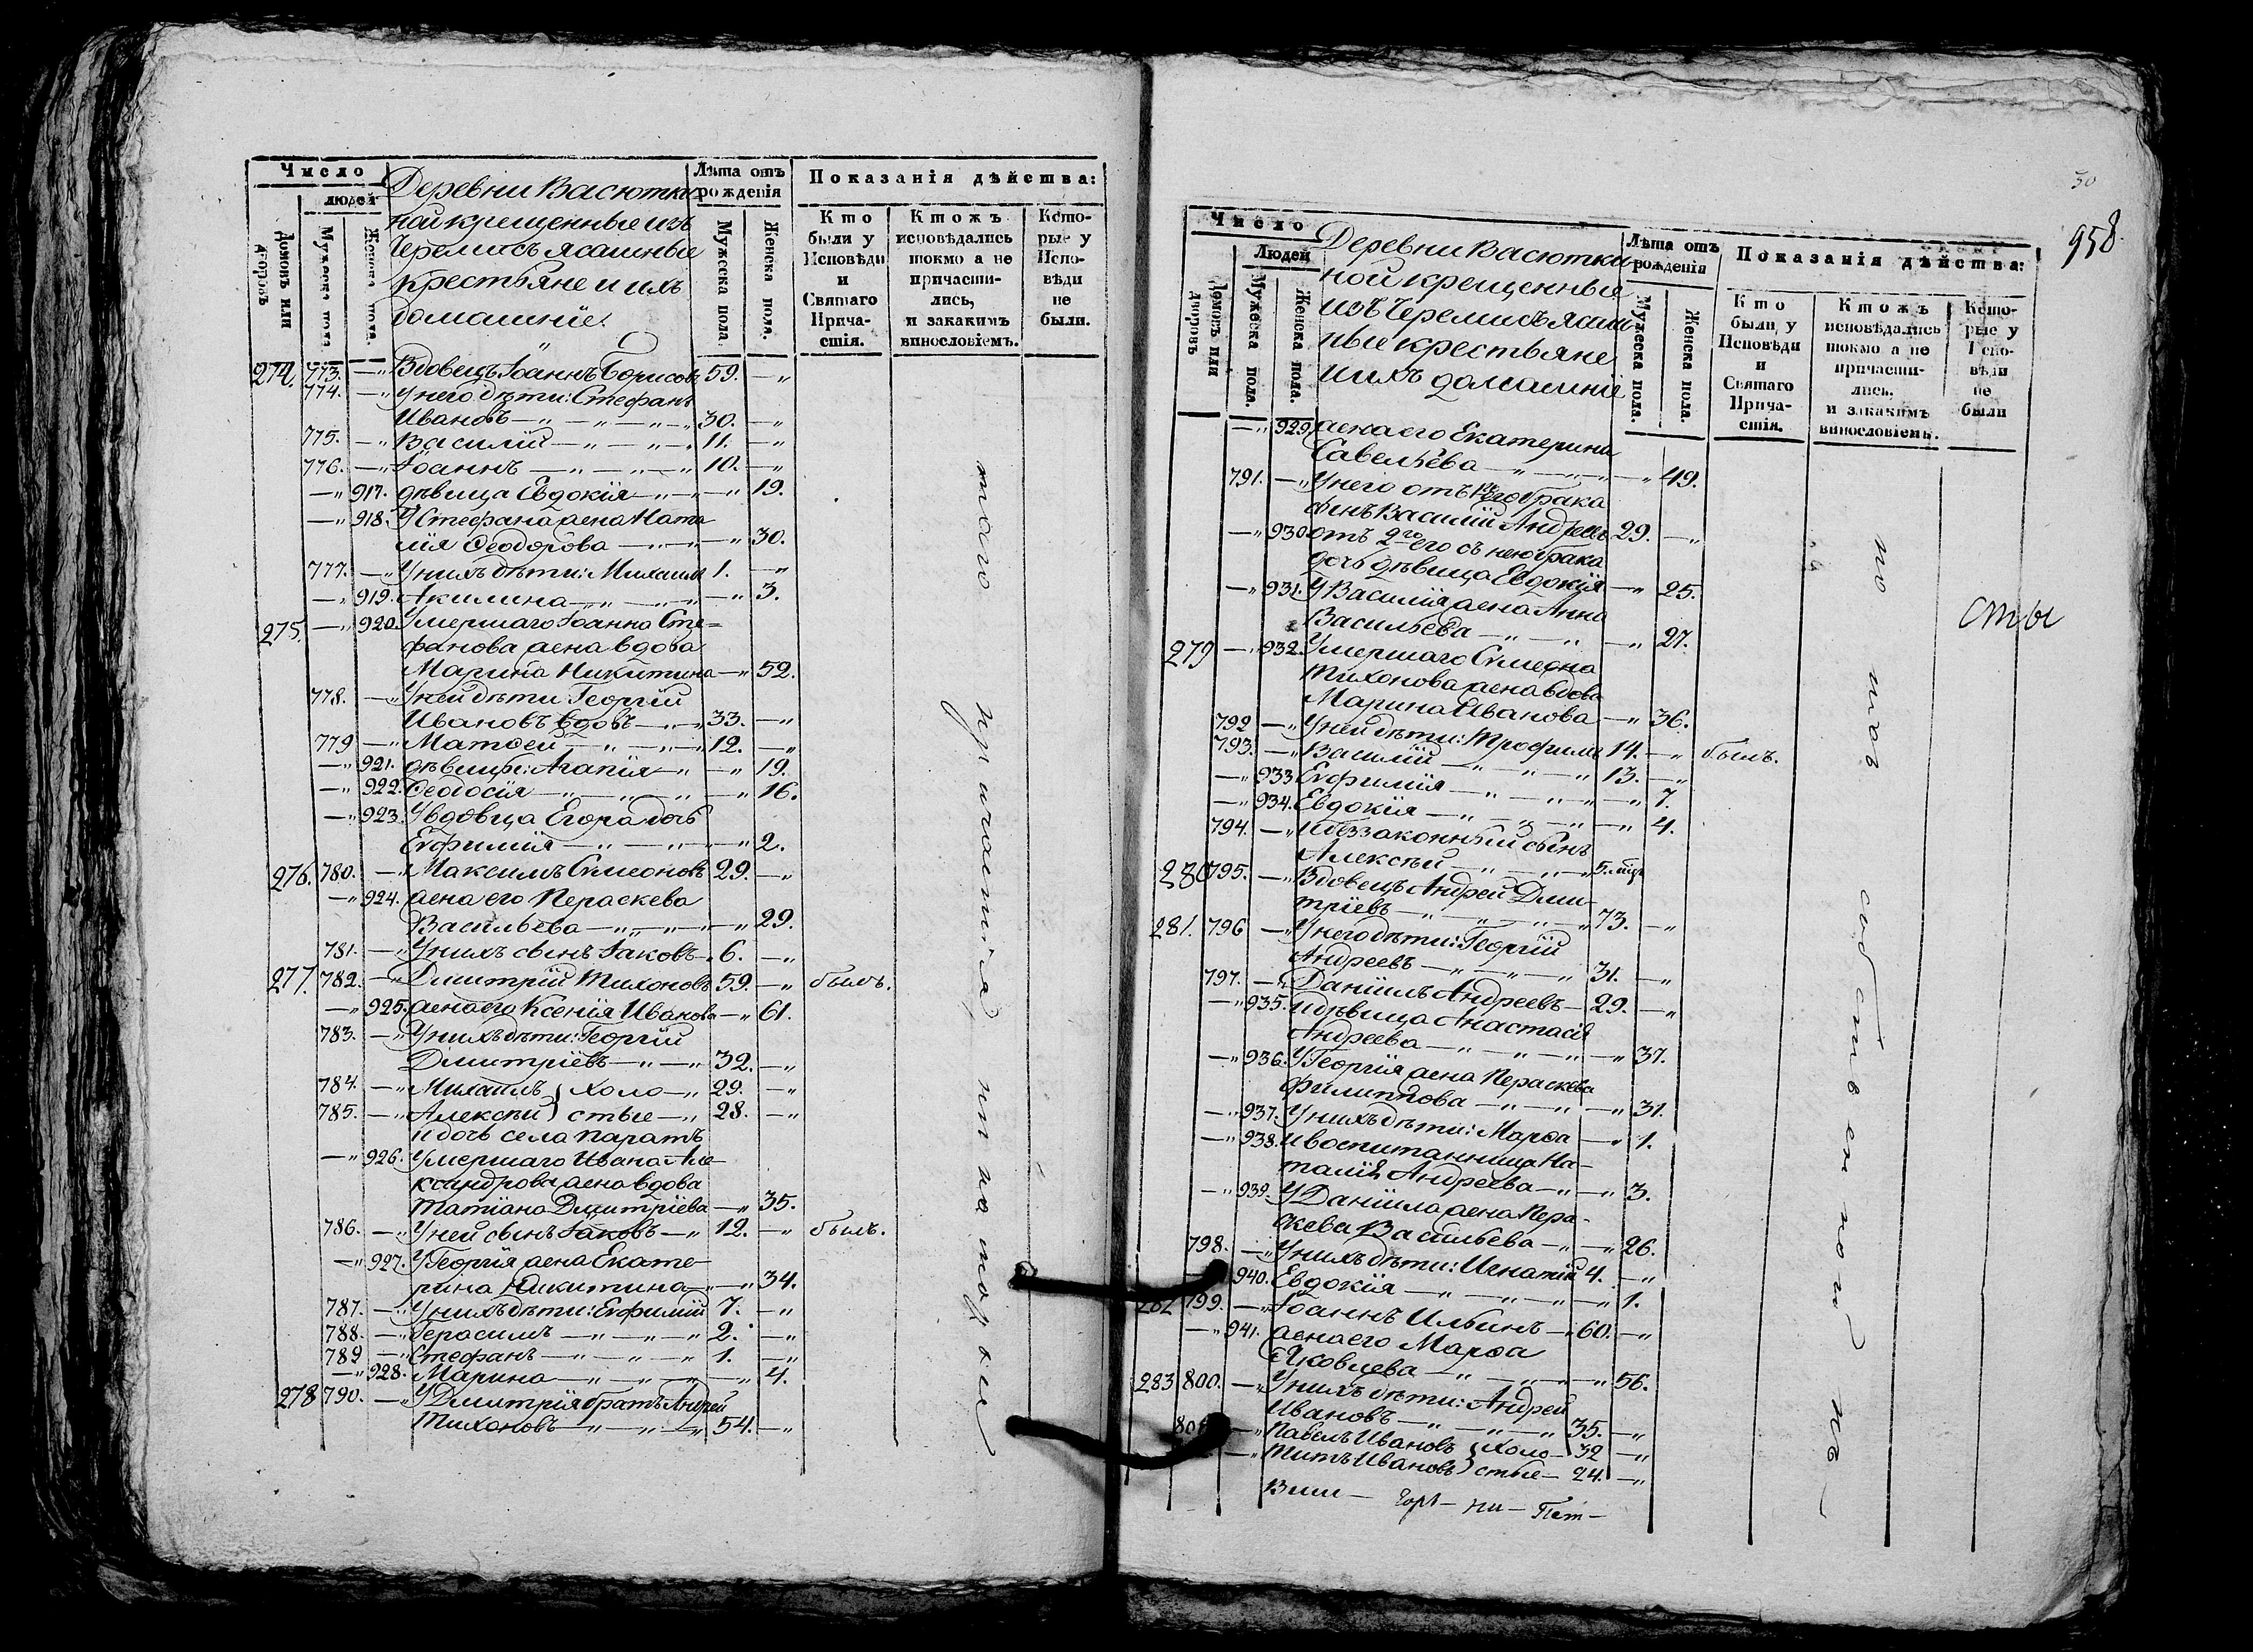 Число
людей
Домовъ или дворовъ
Мужеска пола
Женска пола.
Деревни Васютки
ной крещенные изъ
Черемисъ ясашные
крестьяне и ихъ
домашніе.
Лѣта отъ рожденія
Мужеска пола
Женска пола.
Показанія дѣйства:
Кто были у Исповѣди и Святаго Причастія.
Ктожъ исповѣдались токмо а не причастились, и закакимъ винословіемъ.
Которые у Исповѣди не были.
274. 773. —„ Вдовецъ Іоаннъ Борисовъ 59. —„
774. —„ У него дѣти: Стефанъ
Ивановъ —„—„—„ 30. —„
775. —„ Василій —„—„—„ 11. —„
776. —„ Іоаннъ —„—„—„ 10. —„
—„ 917. дѣвица Евдокія —„— —„ 19.
—„ 918. У Стефана жена Ната
лія Ѳеодорова —„— —„ 30.
777. —„ У нихъ дѣти: Михаилъ 1. —„
—„ 919. Акилина —„—„— —„ 3.
275. —„ 920. Умершаго Іоанна Сте=
фанова жена вдова
Марина Никитина —„ 52.
778. —„ У ней дѣти Георгій
Ивановъ вдовъ —„—„ 33. —„
779 —„ Матѳей —„—„—„ 12. —„
—„ 921. дѣвицы: Агапія —„ —„ 19.
—„ 922. Ѳеодосія —„—„—„ —„ 16.
—„ 923. У вдовца Егора дочь
Евфимія —„—„— —„ 2.
276. 780. —„ Максимъ Симеоновъ 29. —„
—„ 924. жена его Пераскева
Васильева —„—„— —„ 29.
781. —„ У нихъ сынъ Іаковъ —„ 6. —„
277. 782. —„ Димитрій Тихоновъ 59. —„ былъ.
—„ 925. жена его Ксенія Иванова —„ 61.
783. —„ У нихъ дѣти: Георгій
Димитріевъ —„—„ 32. —„
784. —„ Михаилъ } холо —„ 29. —„
785. —„ Алексѣй } стые —„ 28. —„
и дочь села Паратъ
—„ 926. Умершаго Ивана Але
ксандрова жена вдова
Татіана Димитріева —„ 35.
786. —„ У ней сынъ Іаковъ —„ 12. —„ былъ.
—„ 927. У Георгія жена Екате
рина Никитина —„ —„ 34.
787. —„ У нихъ дѣти: Евфимій 7. —„
788. —„ Герасимъ —„—„—„ 2. —„
789 —„ Стефанъ —„—„—„ 1. —„
—„ 928. Марина —„—„— —„ 4.
278 790. —„ У Димитрія братъ Андрей
Тихоновъ —„—„—„ 54. —„
того причастія
50
958.
Число
Людей
Домовъ или дворовъ
Мужеска пола.
Женска пола.
Деревни Васютки
ной крещенные
изъ Черемисъ ясаш
ные крестьяне
и ихъ домашніе
Лѣта отъ рожденія
Мужеска пола.
Женска пола.
Показанія дѣйства:
Кто были у Исповѣди и Святаго Причастія.
Ктожъ исповѣдались токмо а не причастились. и закакимъ винословіемъ.
Которые у Исповѣди не были
—„ 929. жена его Екатерина
Савельева —„—„— —„ 49.
791. —„ У него отъ 1го его брака
сынъ Василій Андреевъ 29. —„
—„ 930. отъ 2го его съ нею брака
дочь дѣвица Евдокія —„ 25.
—„ 931. У Василія жена Анна
Васильева —„—„ —„ 27.
279 —„ 932. Умершаго Симеона
Тихонова жена вдова
Марина Иванова —„ 36.
792 —„ У ней дѣти: Трофимъ 14. —„ былъ.
793. —„ Василій —„—„—„ 13. —„
—„ 933 Евфимія —„—„—„ —„ 7.
—„ 934. Евдокія —„—„—„ —„ 4.
794. —„ и беззаконный сынъ
Алексѣй —„—„—„ 5.
280 795. —„ Вдовецъ Андрей Дими
тріевъ —„—„—„ 73. —„
281. 796 —„ У него дѣти: Георгій
Андреевъ —„—„—„ 31. —„
797. —„ Даніилъ Андреевъ — 29. —„
—„ 935. и дѣвица Анастасія
Андреева —„—„—„ —„ 37.
—„ 936. У Георгія жена Пераскева
Филиппова —„—„ —„ 31.
—„ 937. У нихъ дѣти: Марѳа —„ 1.
—„ 938. и воспитанница На-
талія Андреева —„ —„ 3.
—„ 939. У Даніила жена Пера-
скева Васильева —„ —„ 26.
798. —„ У нихъ дѣти: Игнатій 4. —„
940. Евдокія —„—„—„ —„ 1.
282 799. —„ Іоаннъ Ильинъ —„ 60. —„
—„ 941. жена его Марѳа
Яковлева —„—„— —„ 56.
283 800. —„ У нихъ дѣти: Андрей
Ивановъ —„—„—„ 35. —„
801 —„ Павелъ Ивановъ } холо — 32 —„
—„ Титъ Ивановъ } стые — 24. —„
по
сты